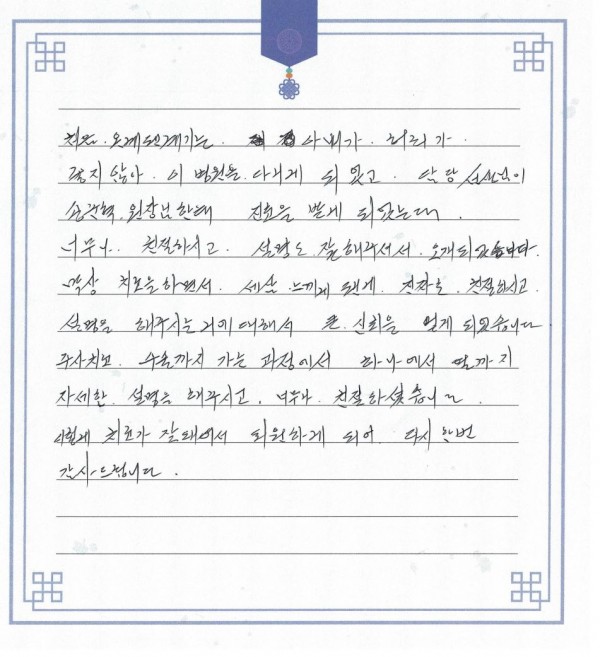 처음. 오게된계기는. 아버가. 허리가.
좋지 않아. 이 병원을. 다니게 되었고. 담당 선생님이
손관혁. 원장님한테 진료을 받게 되었는데.
너무나. 친절하시고. 설명도 잘해주셔서. 오게되었습니다.
막상 치료을하면서. 세삼 느끼게 됀게. 친자도. 친절하시고.
설명을 해주시는거에 대해서 큰. 신뢰을 얻게 되었습니다
주사치료. 수술까지 가는 과정에서 하나에서 열까지
자세한. 설명을 해주시고. 너무나. 친절하셨습니다.
이렇게 치료가 잘돼어서 퇴원하게 되어. 다시한번
감사드립니다.